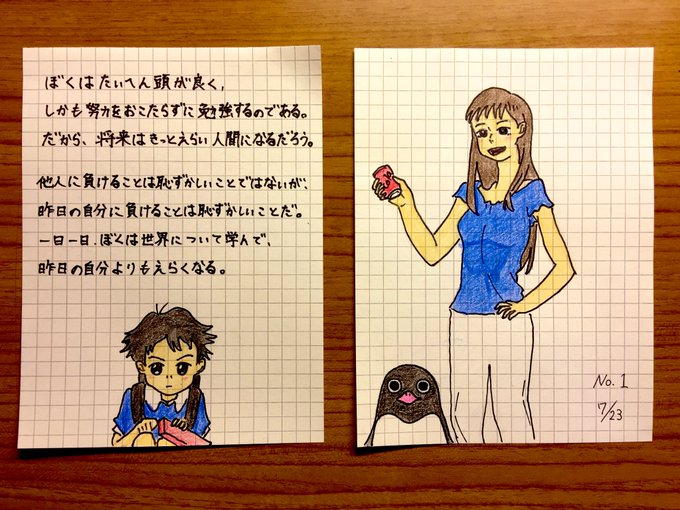 ぼくはたいへん頭が良く、
しかも努力をおこたらずに勉強するのである。
だから、将来はきっとえらい人間になるだろう。
他人に負けることは恥ずかしいことではないが、
昨日の自分に負けることは恥ずかしいことだ。
一日一日、ぼくは世界について学んで、
昨日の自分よりもえらくなる。
No. 1
7/23